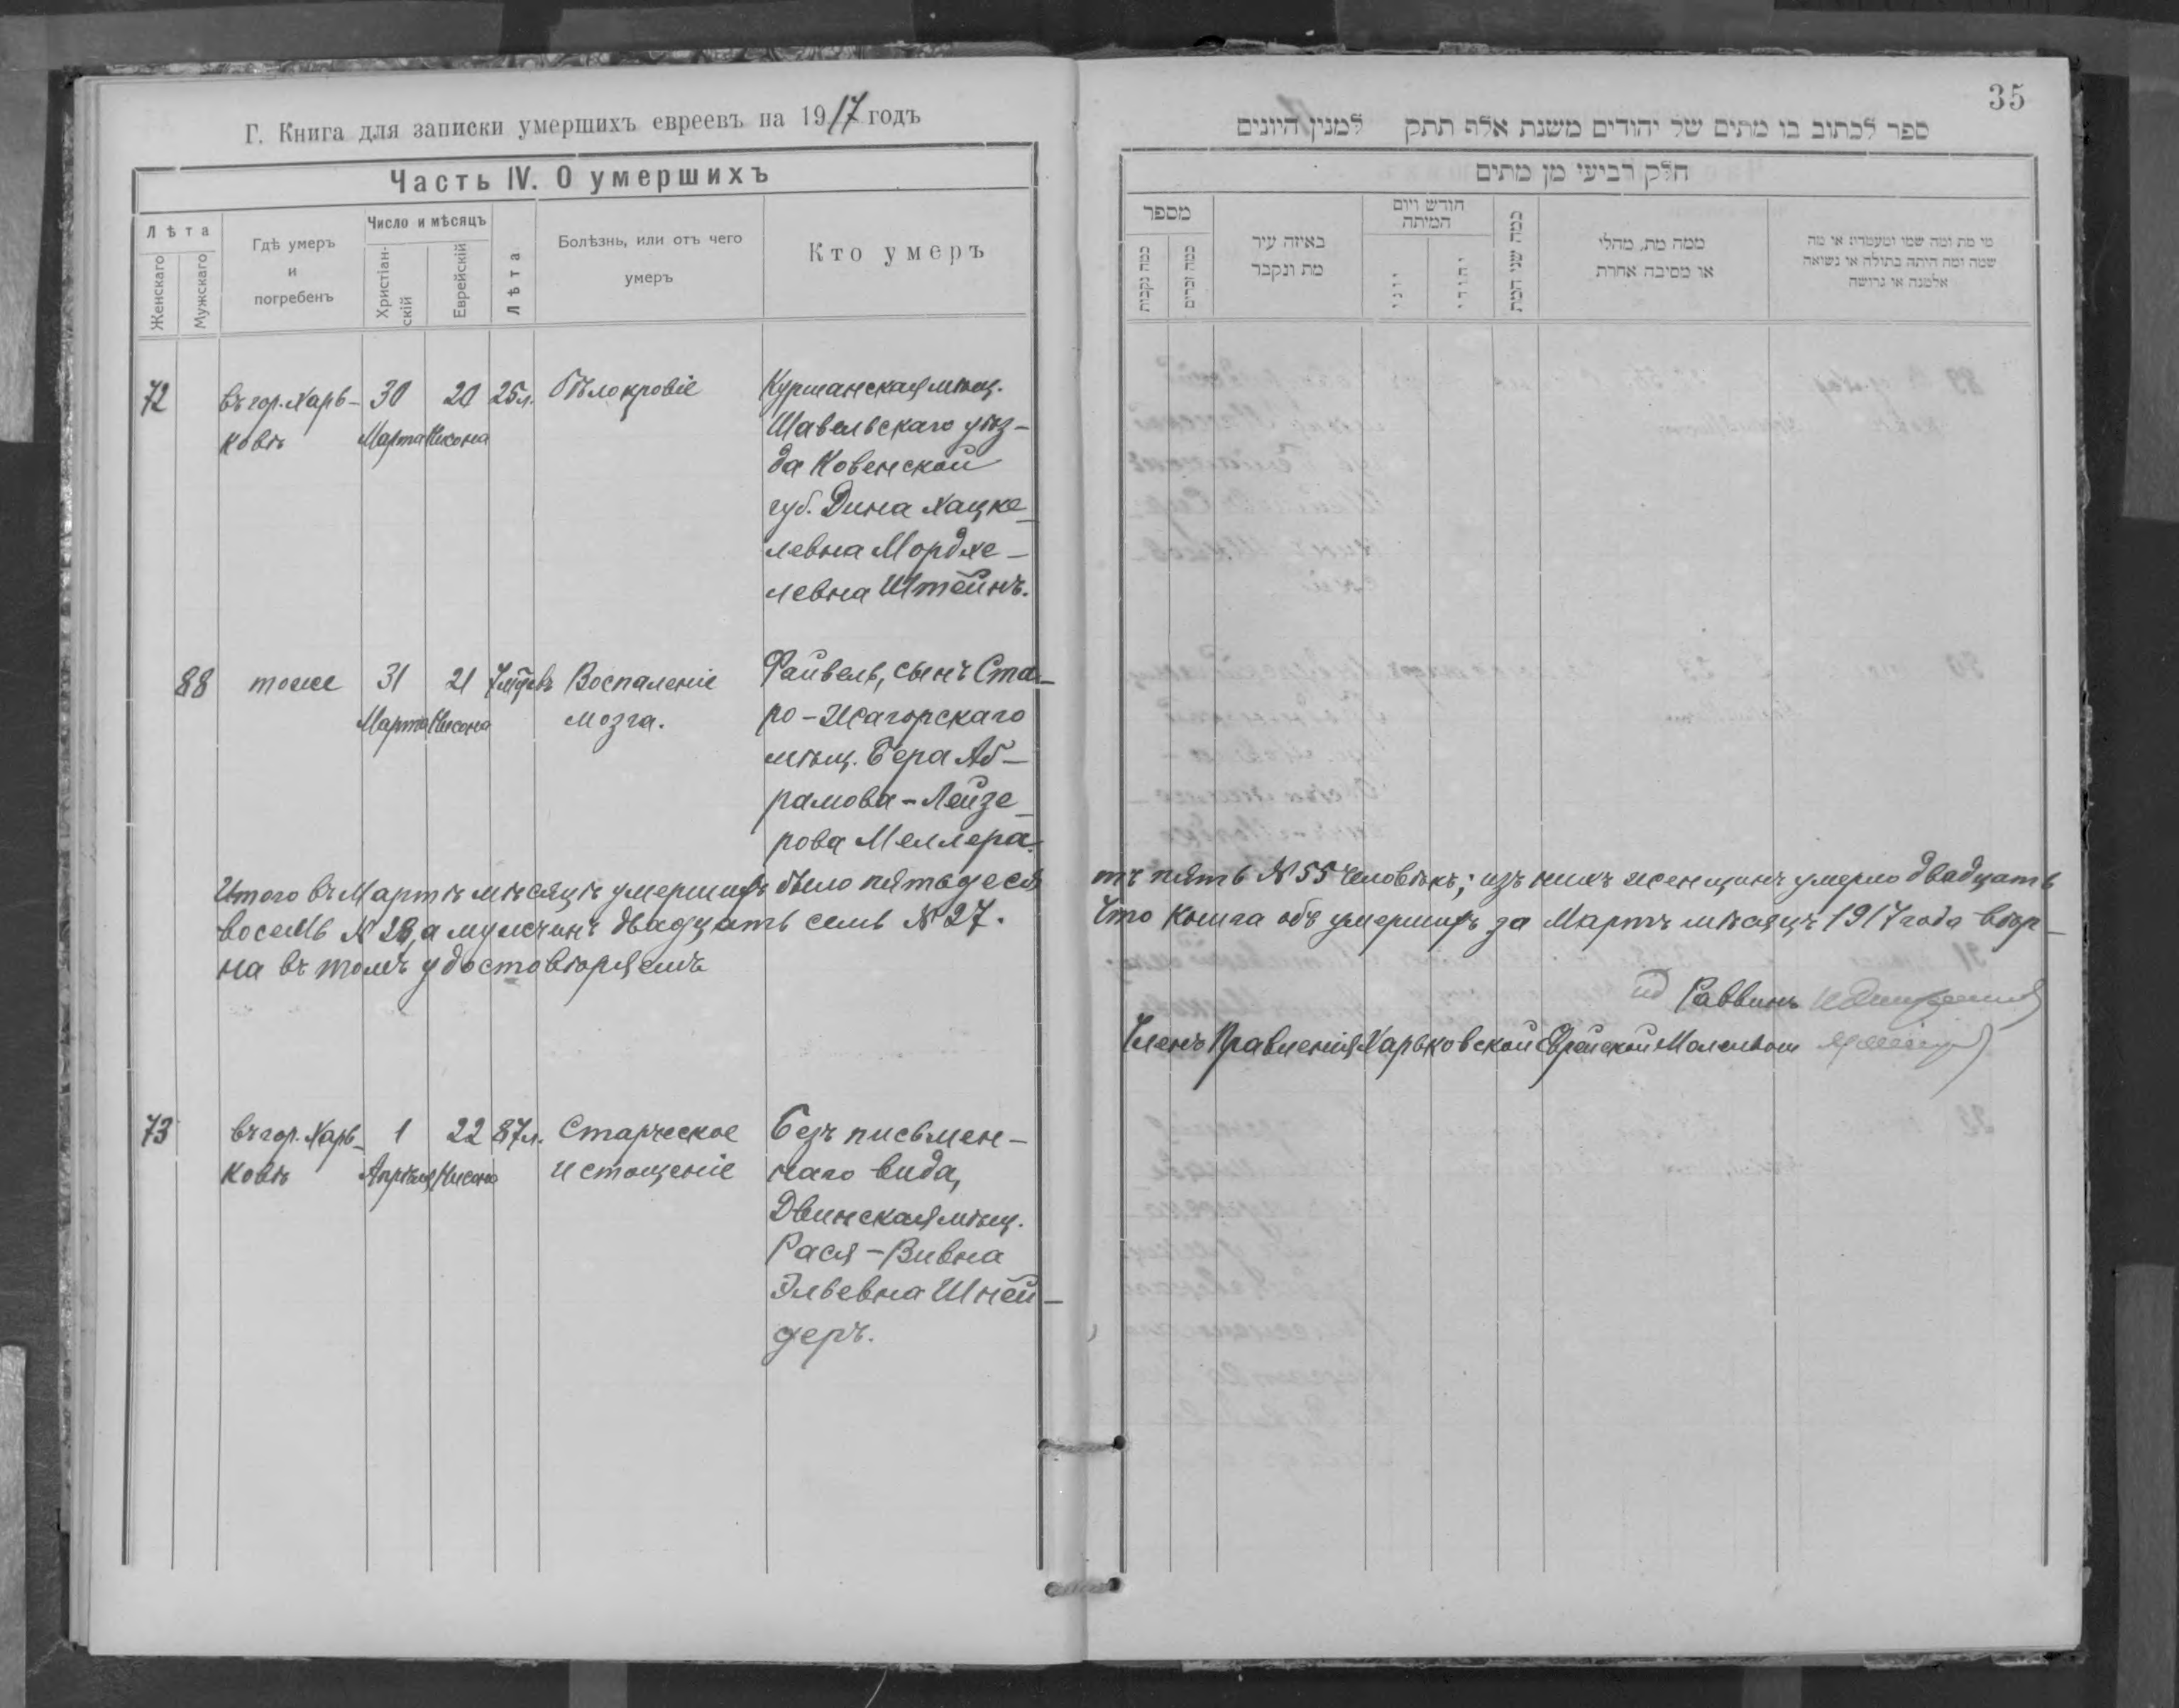 Г. Книга для записки умершихъ евреевъ на 1917 годъ
Часть IV. О умершихъ
Лѣта
Женскаго
Мужскаго
Гдѣ умеръ
и
погребенъ
Число и мѣсяцъ
Христіан-
скій
Еврейскій
Лѣта
Болѣзнь, или отъ чего
умеръ
Кто умеръ
72 въ гор. Харь- 30 20 25 л. Бѣлокровіе Куршанская мѣщ.
ковѣ Марта Нисона Шавельскаго уѣз-
да Ковенской
губ. Дина Хацке-
левна Мордхе-
левна Штейнъ.
88 тоже 31 21 Воспаленіе Файвель, сынъ Ста-
Марта Нисона мозга. ро-Жагорскаго
мѣщ. Бера Аб-
рамова-Лейзе-
рова Меллера.
Итого въ Мартѣ мѣсяцѣ умершихъ было пятьдеся
восемь № 28, а мужчинъ двадцать семь № 27.
на въ томъ удостовѣряемъ
73 въ гор. Харь- 1 22 87 л. Старческое Безъ письмен-
ковѣ Апрѣля Нисона истощеніе наго вида,
Двинская мѣщ.
Рася-Ривна
Эльевна Шней-
деръ.
35
ספר לכתוב בו מתים של יהודים משנת אלף תתק למנין היונים
חלק רביעי מן מתים
מספר
כמה נקבות
כמה זכרים
באיזה עיר
מת ונקבר
חודש ויום
המיתה
יוני
יהודי
כמה שני המת
ממה מת, מחלי
או מסיבה אחרת
מי מת ומה שמו ומעמדו או מה
שמה ומה היתה בתולה או נשואה
אלמנה או גרושה
тъ пять № 55 человѣкъ; изъ нихъ женщинъ умерло двадцать
Что книга объ умершихъ за Мартъ мѣсяцъ 1917 года вѣр-
ид Раввинъ
Членъ Правленія Харьковской Еврейской Молельни